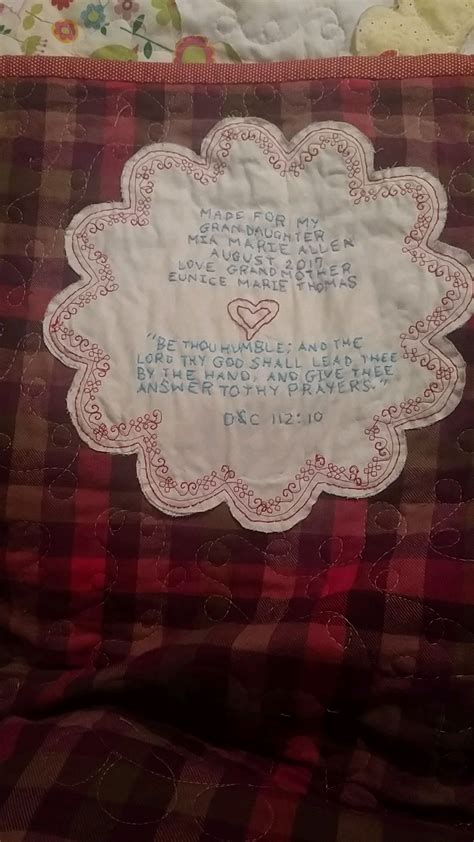 MADE FOR MY
GRANDAUGHTER
MIA MARIE ALLEN
AUGUST 2017
LOVE GRANDMOTHER
EUNICE MARIE THOMAS
"BE THOU HUMBLE; AND THE
LORD THY GOD SHALL LEAD THEE
BY THE HAND, AND GIVE THEE
ANSWER TO THY PRAYERS."
D&C 112:10